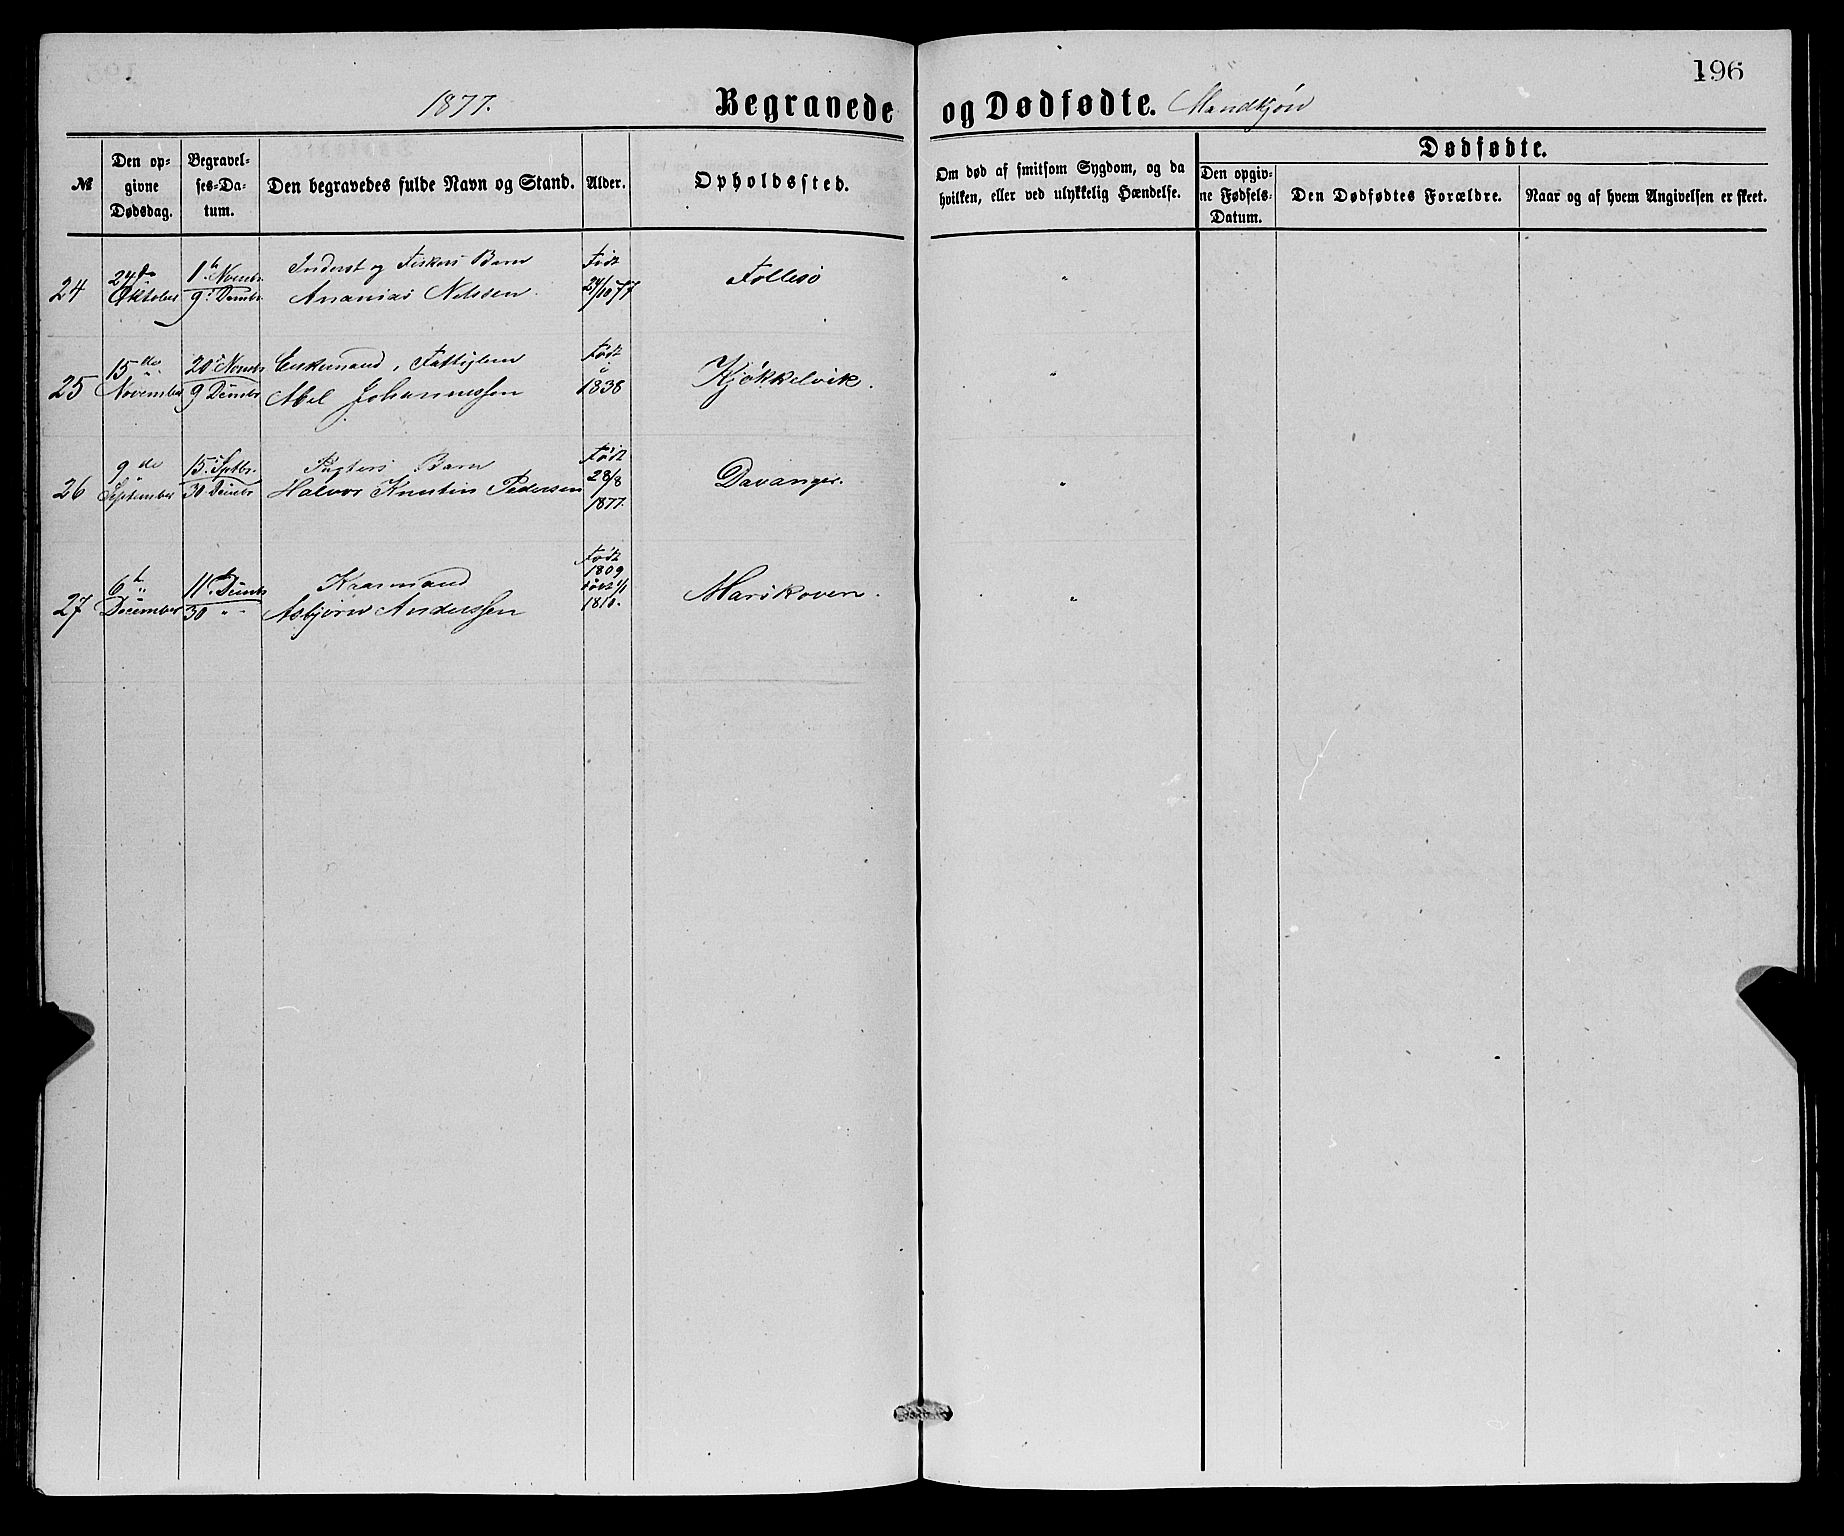 196
1877. Begravede og Dødfødte. Mandkjøn
№
Den opgivne Dødsdag.
Begravelses-Datum.
Den begravedes fulde Navn og Stand.
Alder.
Opholdssted.
Om død af smitsom Sygdom, og da hvilken, eller ved ulykkelig Hændelse.
Dødfødte.
Den opgivne Fødsels-Datum.
Den Dødfødtes Forældre.
Naar og af hvem Angivelsen er skeet.
24 24de Oktober 1ste Novembr 9de Decembr Inderst og Fiskers Barn Ananias Nilssen. Født 24/10 77 Follesø "
25 15de November 20 Novmbr 9 Dcmbr Enkemand, Fattiglem Abel Johannessen Født i 1838 Kjøkkelvik. "
26 9de September 15. Sptbr. 30 Dcmbr Barn Halvor Knutin Pedersen Født 28/8 1877. Davanger. "
27 6te December 11te Dcmbr 30 " Kaarmand Asbjørn Anderssen Født 1809 døbt 1/1 1810. Marikoven. "